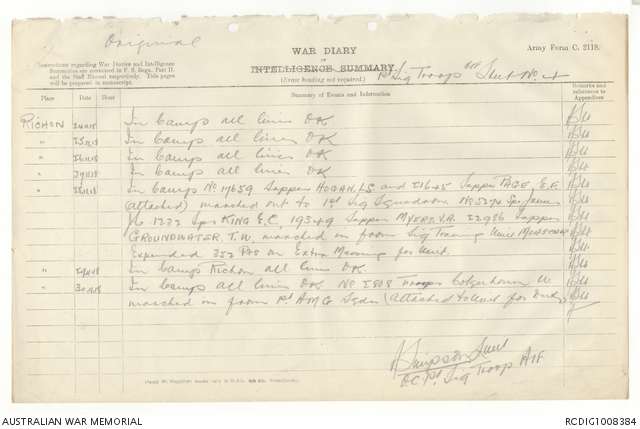 Original
WAR DIARY
or
INTELLIGENCE SUMMARY.
(Erase heading not required.)
Army Form C. 2118.
Instructions regarding War Diaries and Intelligence
Summaries are contained in F. S. Regs., Part II.
and the Staff Manual respectively. Title pages
will be prepared in manuscript.
1st Sig Troop AIF Sheet No. 4
Place Date Hour Summary of Events and Information Remarks and references to Appendices
RICHON 24/11/18 In Camps all lines OK
" 25/11/18 In Camps all lines OK
" 26/11/18 In Camps all lines OK
" 27/11/18 In Camps all lines OK
" 28/11/18 In Camps No 14659 Sapper HOGAN and 21645 Sapper PAGE, E.E.
(attached) marched out to 1st Sig Squadron No 5270 Spr
1222 Spr KING E.C, 19349 Sapper MYERS V.A. 22986 Sapper
GROUNDWATER, T.W. marched in from Sig Training Unit
Expended 252 Pts on Extra Messing for Unit.
" 29/11/18 In Camps Richon all lines OK.
" 30/11/18 In Camps all lines OK No 2808 Trooper
marched in from 1st AMG Sqdn (attached to Unit for Duty)
Simpson Lieut
O.C. 1st Sig Troop AIF
AUSTRALIAN WAR MEMORIAL
RCDIG1008384